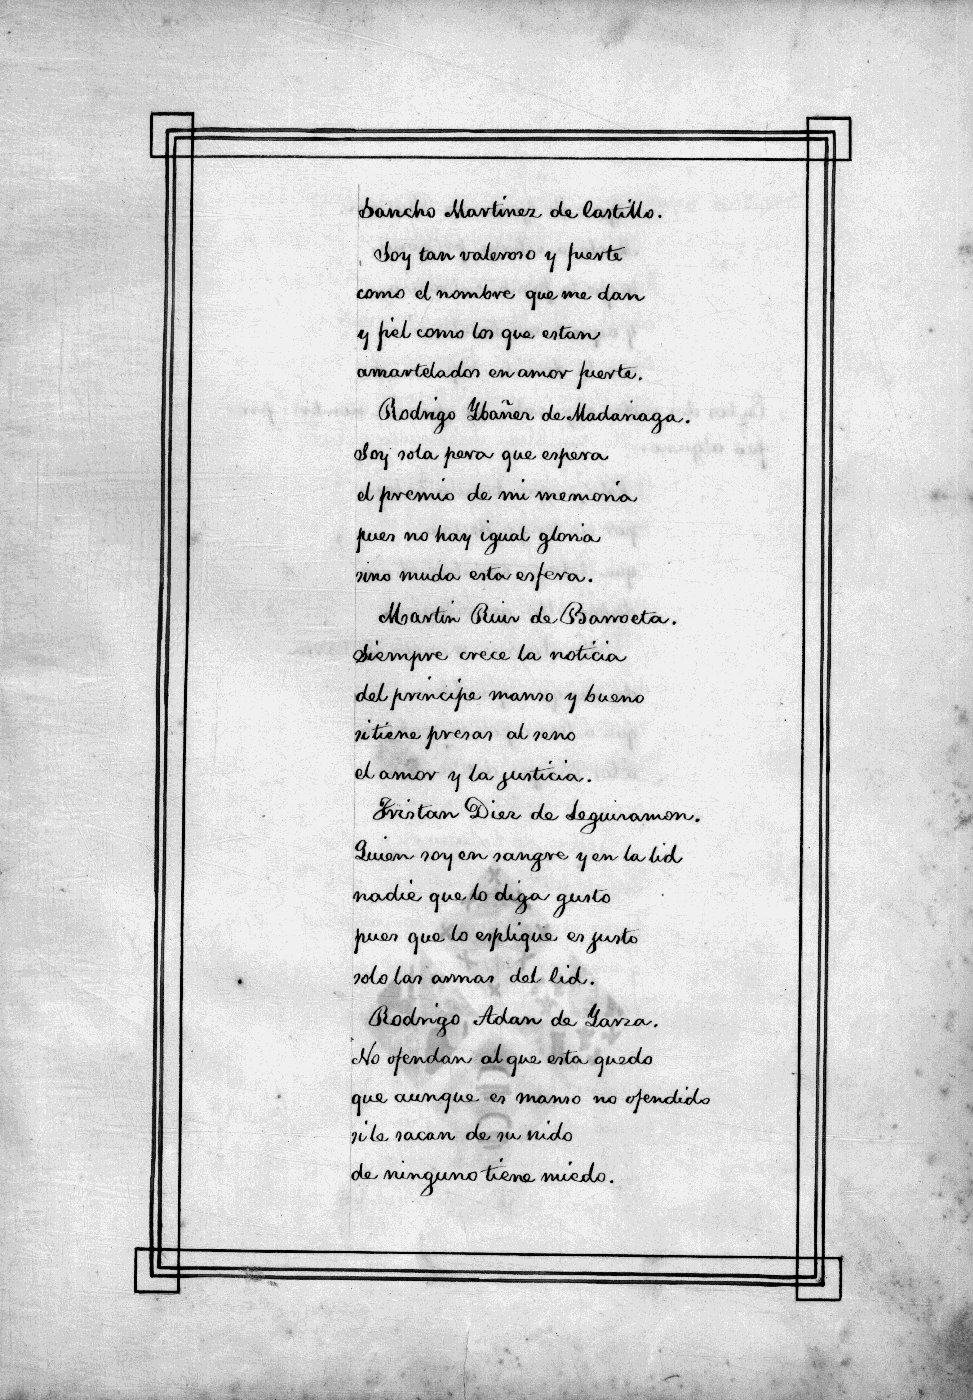 Sancho Martinez de Castillo.
Soy tan valeroso y fuerte
como el nombre que me dan
y fiel como los que estan
amartelados en amor fuerte.
Rodrigo Ybañez de Madariaga.
Soy sola pera que espera
el premio de mi memoria
pues no hay igual gloria
sino muda esta esfera.
Martin Ruiz de Barroeta.
Siempre crece la noticia
del principe manso y bueno
si tiene presas al seno
el amor y la justicia.
Tristan Diez de Leguisamon.
Quien soy en sangre y en la lid
nadie que lo diga gusto
pues que lo esplique es justo
solo las armas del lid.
Rodrigo Adan de Yarza.
No ofendan al que esta quedo
que aunque es manso no ofendido
si le sacan de su nido
de ninguno tiene miedo.